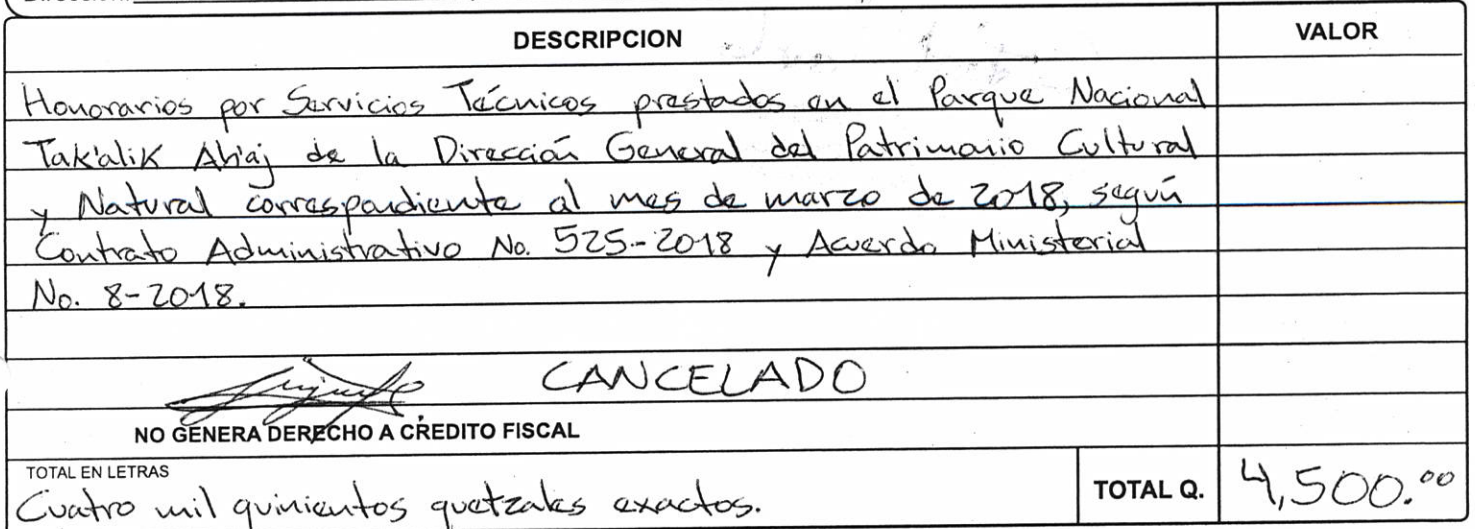 DESCRIPCION VALOR
Honorarios por Servicios Técnicos prestados en el Parque Nacional
Tak'alik Ab'aj de la Dirección General del Patrimonio Cultural
y Natural correspondiente al mes de marzo de 2018, según
Contrato Administrativo No. 525-2018 y Acuerdo Ministerial
No. 8-2018.
CANCELADO
NO GENERA DERECHO A CREDITO FISCAL
TOTAL EN LETRAS
Cuatro mil quinientos quetzales exactos. TOTAL Q. 4,500.00